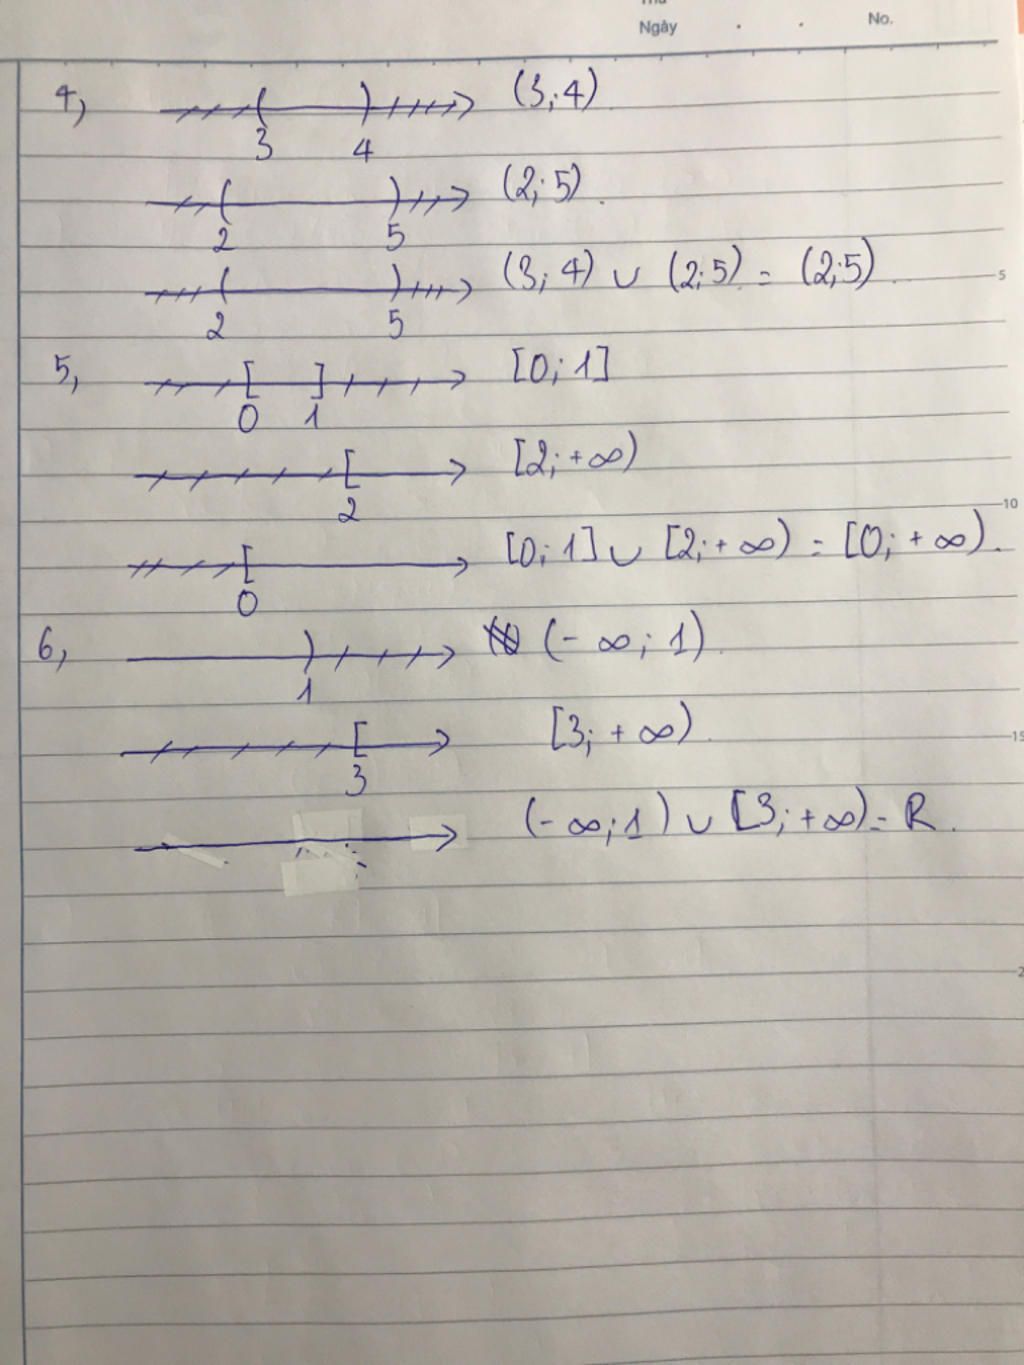 Ngày . . No.
4, (3;4)
3 4
(2;5).
2 5
(3;4) ∪ (2;5) = (2;5) 5
2 5
5, [0;1]
0 1
[2;+∞)
2 10
[0;1] ∪ [2;+∞) = [0;+∞).
0
6, (-∞;1)
1
[3;+∞) 15
3
(-∞;1) ∪ [3;+∞) = R.